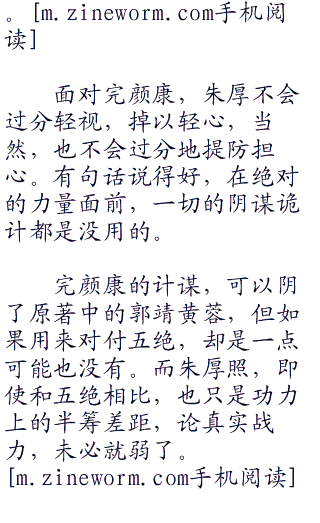 。[m.zineworm.com手机阅
读]
面对完颜康，朱厚不会
过分轻视，掉以轻心，当
然，也不会过分地提防担
心。有句话说得好，在绝对
的力量面前，一切的阴谋诡
计都是没用的。
完颜康的计谋，可以阴
了原著中的郭靖黄蓉，但如
果用来对付五绝，却是一点
可能也没有。而朱厚照，即
使和五绝相比，也只是功力
上的半筹差距，论真实战
力，未必就弱了。
[m.zineworm.com手机阅读]